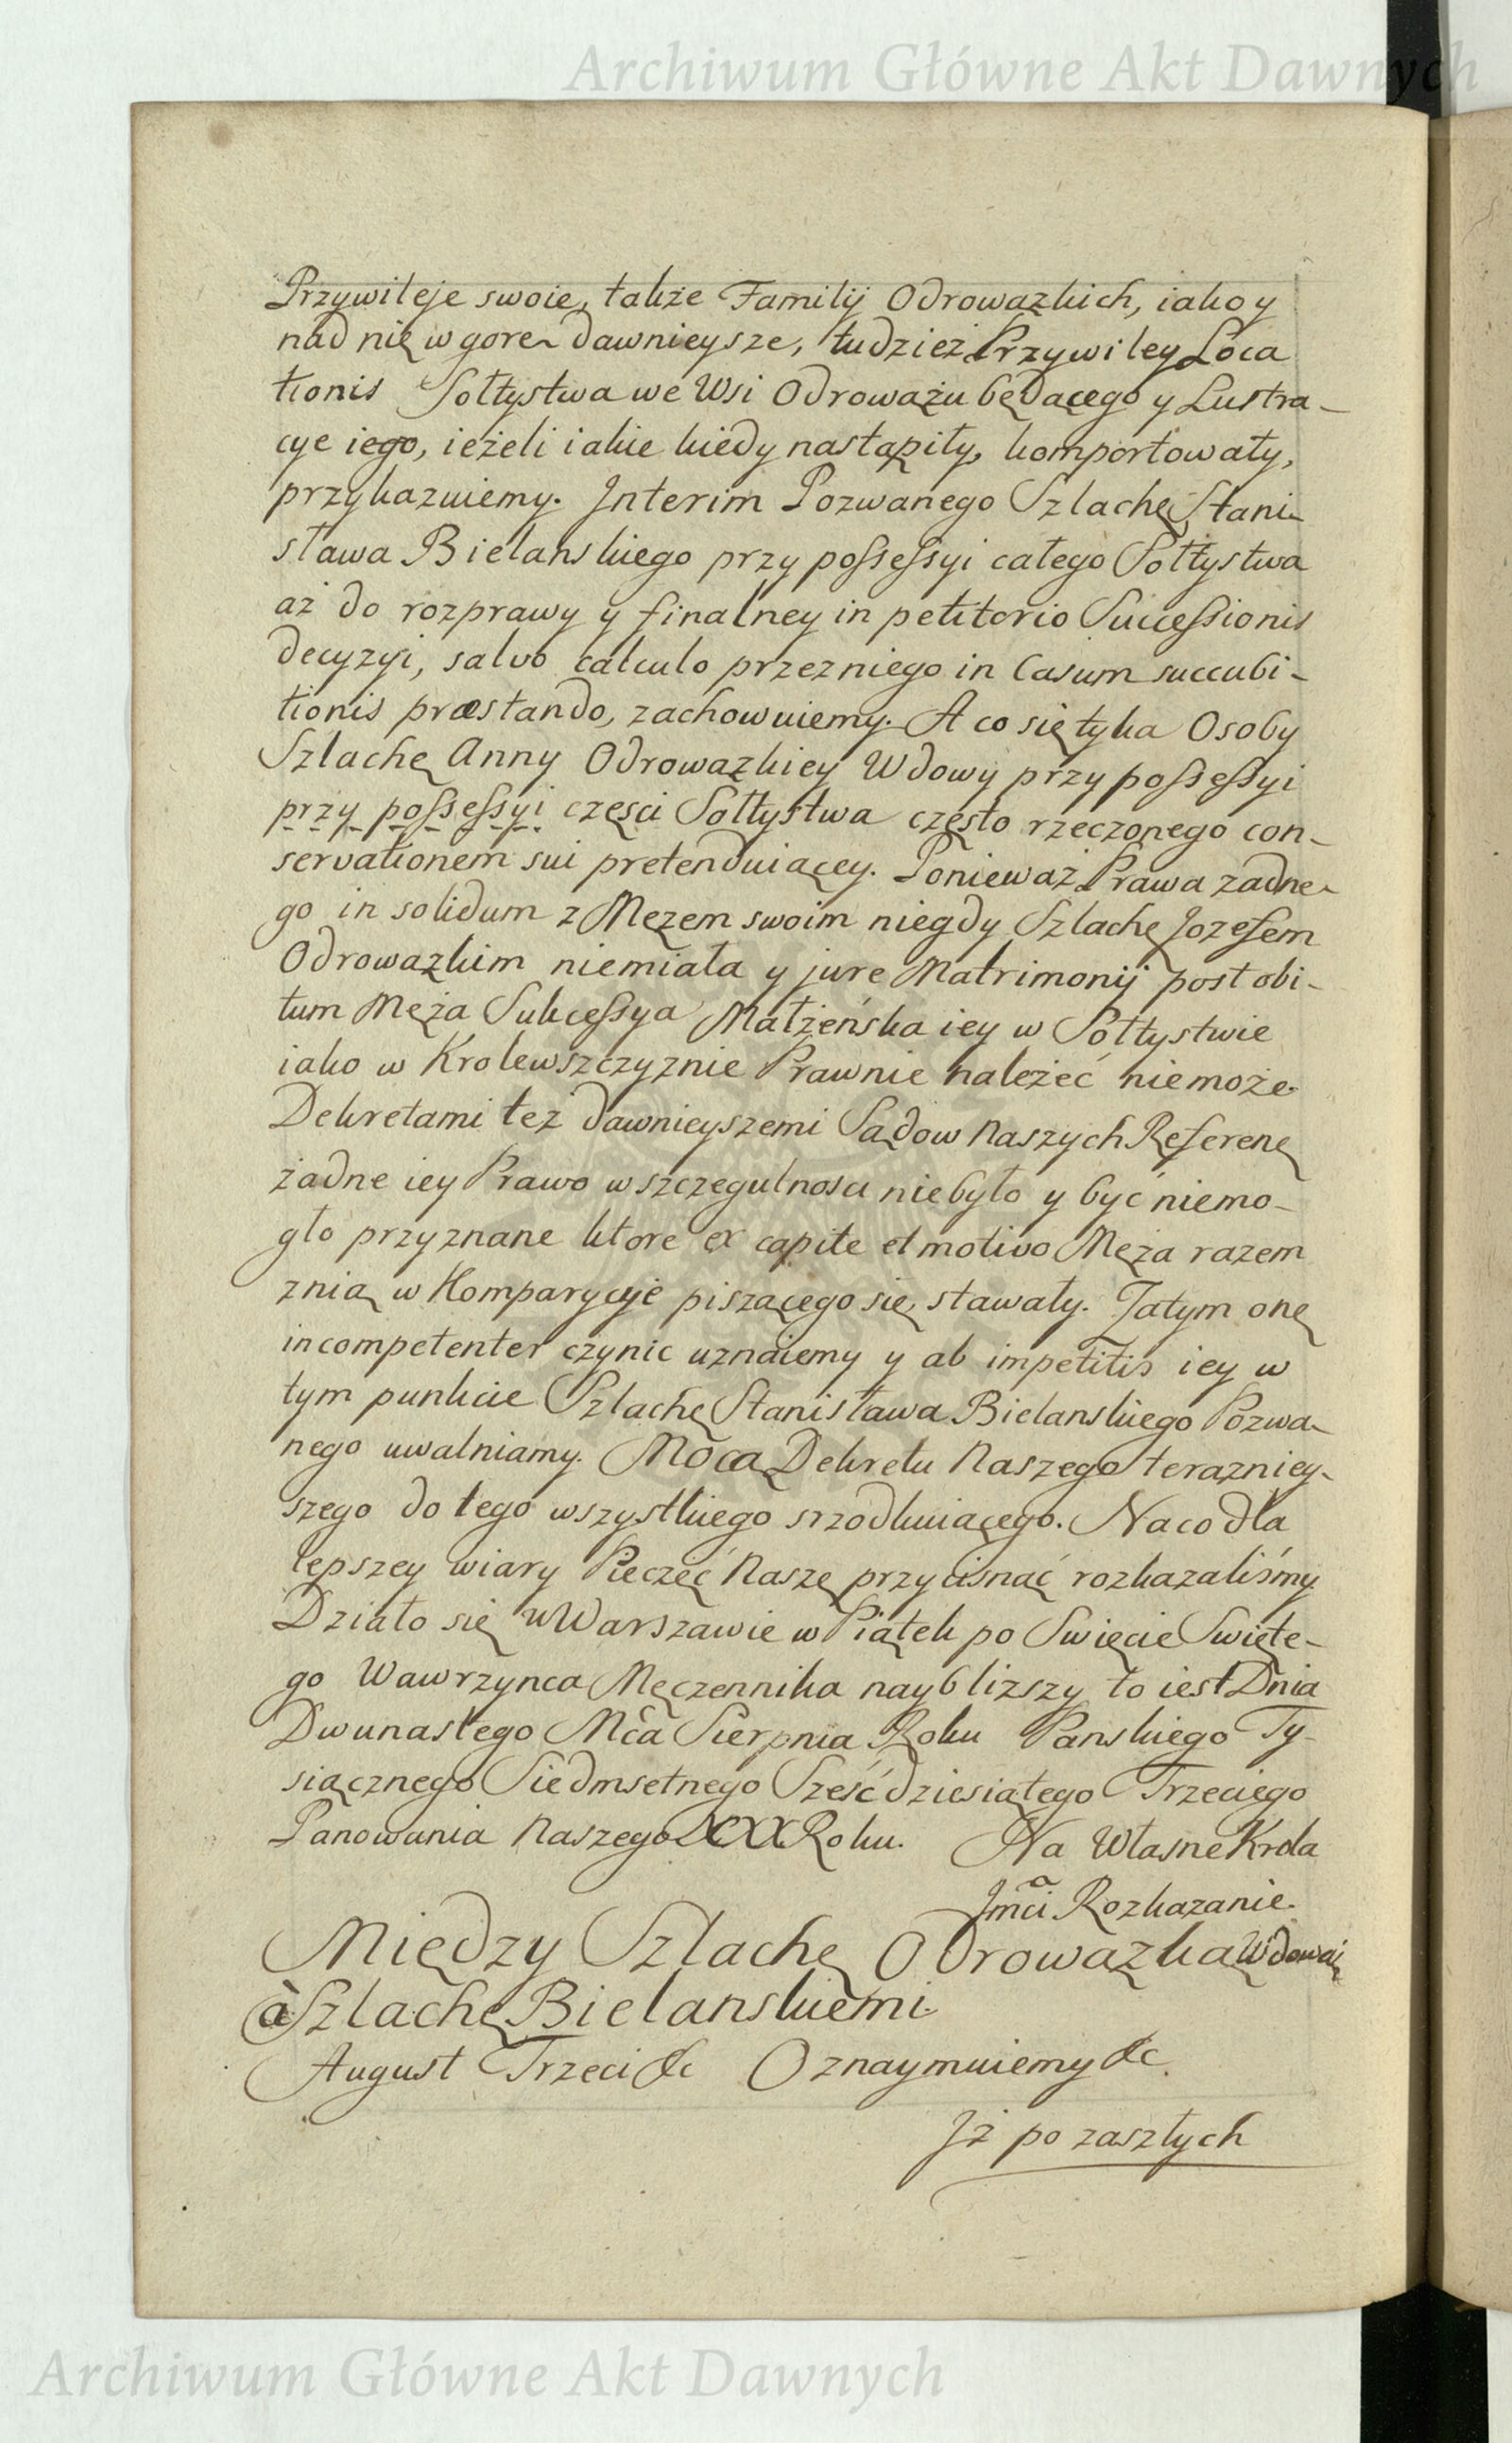 Archiwum Główne Akt Dawnych
Przywileje swoie, także Familij Odrowązkich, iako y
nad nię w gore dawnieysze, tudzież Przywiley Loca
tionis Sołtystwa we Wsi Odrowążu będącego y Lustra-
cye iego, ieżeli iakie kiedy nastąpiły, komportowały,
przykazuiemy. Interim Pozwanego Szlachę Stani-
sława Bielanskiego przy possessyi całego Sołtystwa
aż do rozprawy y finalney in petitorio Successionis
decyzyi, salvo calculo przez niego in Casum succubi-
tionis præstando, zachowuiemy. A co się tyka Osoby
Szlachę Anny Odrowązkiey Wdowy przy possessyi
przy possessyi części Sołtystwa często rzeczonego con-
servationem sui pretenduiącey. Ponieważ Prawa zadne-
go in solidum z Męzem swoim niegdy Szlachę Jozefem
Odrowązkim niemiała y jure Matrimonij post obi-
tum Męża Sukcessya Małżeńska iey w Sołtystwie
iako w Krolewszczyznie Prawnie należeć niemoże.
Dekretami też dawnieyszemi Sądow Naszych Referenę
żadne iey Prawo wszczegulnosci niebyło y być niemo-
gło przyznane ktore ex capite et motivo Męża razem
znią w Komparycyje piszącego się, stawały. Zatym onę
incompetenter czynic uznaiemy y ab impetitis iey w
tym punkcie Szlachę Stanisława Bielanskiego Pozwa-
nego uwalniamy. Mocą Dekretu Naszego teraznie y-
szego do tego wszystkiego srzodkuiącego. Na co dla
lepszey wiary Pieczęć Naszę przycisnąć rozkazaliśmy.
Działo się w Warszawie w Piątek po Swięcie Swięte-
go Wawrzynca Męczennika nayblizszy to iest Dnia
Dwunastego Mca Sierpnia Roku Panskiego Ty-
siącznego Siedmsetnego Sześćdziesiątego Trzeciego
Panowania Naszego XXX Roku. Na Własne Krola
Jmci Rozkazanie.
Między Szlachę Odrowązką Wdową
à Szlachę Bielanskiemi.
August Trzeci &c Oznaymuiemy &c.
Iż po zaszłych
Archiwum Główne Akt Dawnych